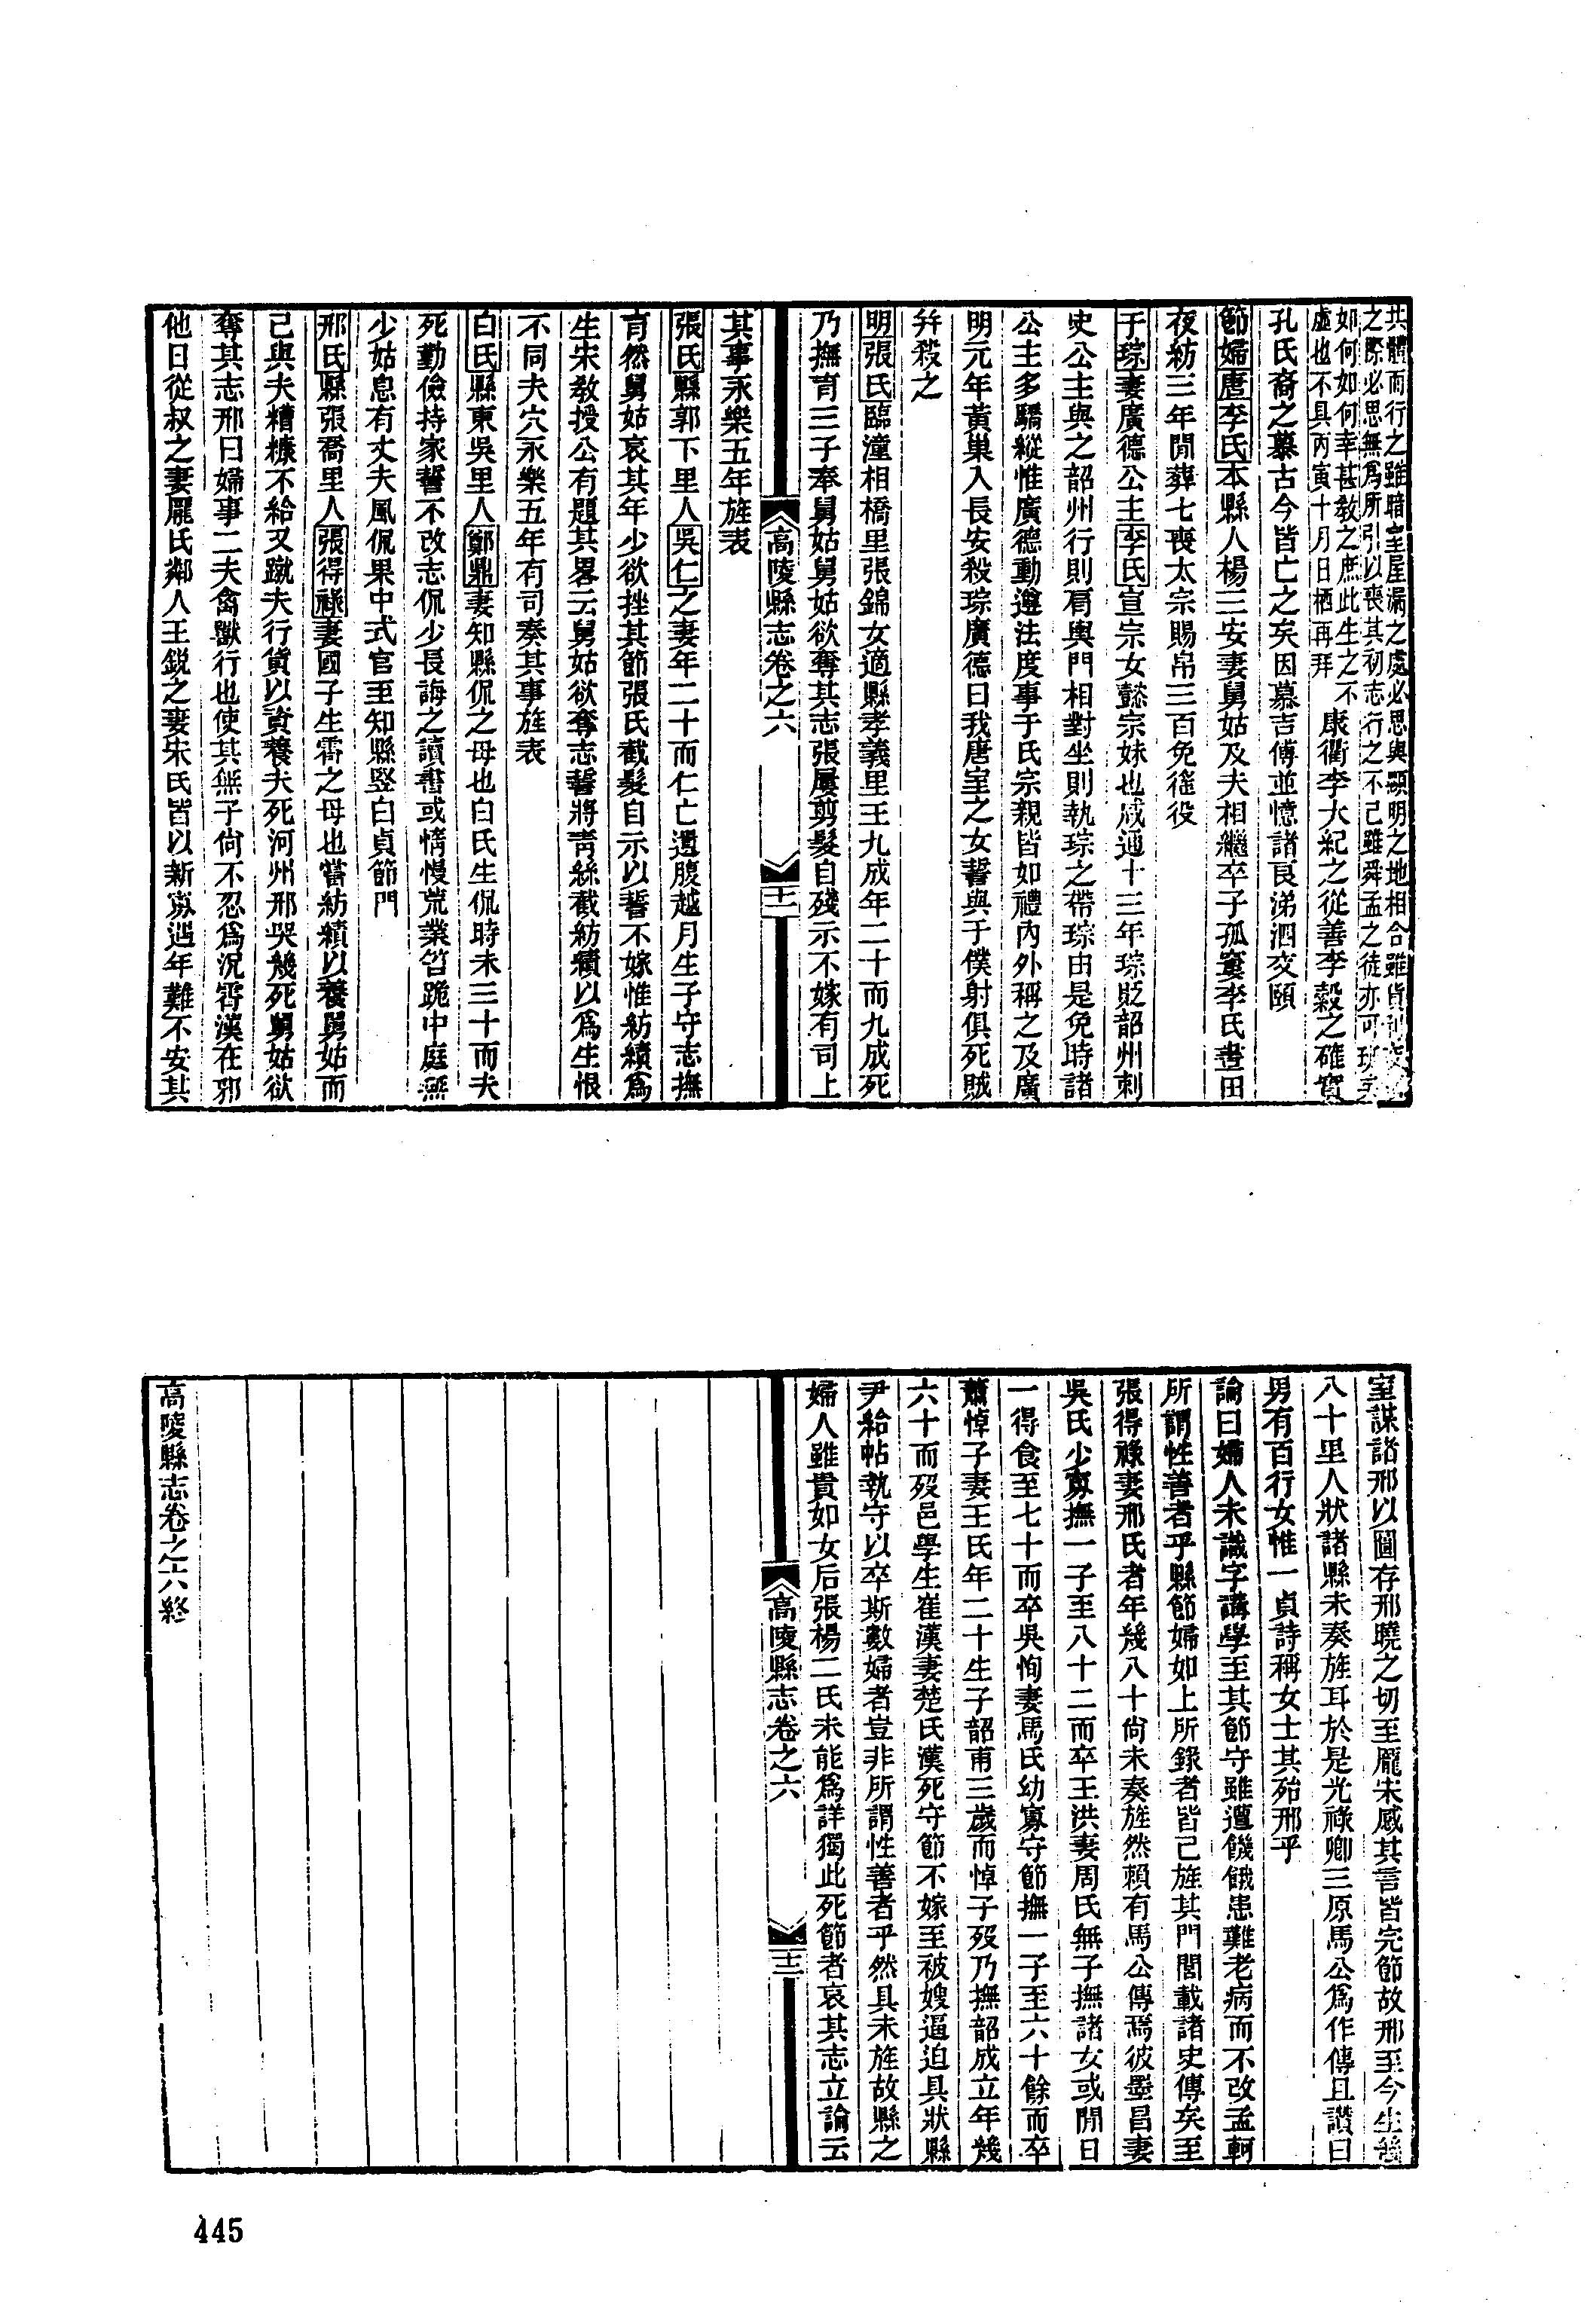 共體而行之雖暗室屋漏之處必思與顯明之地相合雖貨利
之際必思無爲所引以喪其初志行之不已雖舜孟之徒亦可
如何如何幸甚敎之庶此生之不
虛也不具丙寅十月日栖再拜
康衢李大紀之從善李穀之確實
孔氏裔之慕古今皆亡之矣因慕吉傳並憶諸良涕泗交頤
節婦唐李氏本縣人楊三安妻舅姑及夫相繼卒子孤窶李氏晝田
夜紡三年閒葬七喪太宗賜帛三百免徭役
于琮妻廣德公主李氏宣宗女懿宗妹也咸通十三年琮貶韶州刺
史公主與之韶州行則肩輿門相對坐則執琮之帶琮由是免時諸
公主多驕縱惟廣德動遵法度事于氏宗親皆如禮內外稱之及廣
明元年黃巢入長安殺琮廣德曰我唐室之女誓與于僕射俱死賊
幷殺之
明張氏臨潼相橋里張錦女適縣孝義里王九成年二十而九成死
乃撫育三子奉舅姑舅姑欲奪其志張屢剪髮自殘示不嫁有司上
高陵縣志卷之六
十二
其事永樂五年旌表
張氏縣郭下里人吳仁之妻年二十而仁亡遺腹越月生子守志撫
育然舅姑哀其年少欲挫其節張氏截髮自示以誓不嫁惟紡績爲
生宋敎授公有題其畧云舅姑欲奪志誓將靑絲截紡績以爲生恨
不同夫穴永樂五年有司奏其事旌表
白氏縣東吳里人鄭鼎妻知縣侃之母也白氏生侃時未三十而夫
死勤儉持家誓不改志侃少長誨之讀書或惰慢荒業笞跪中庭無
少姑息有丈夫風侃果中式官至知縣竪白貞節門
邢氏縣張喬里人張得祿妻國子生霄之母也嘗紡績以養舅姑而
己與夫糟糠不給又蹴夫行貨以資養夫死河州邢哭幾死舅姑欲
奪其志邢曰婦事二夫禽獸行也使其無子尙不忍爲況霄漢在邪
他日從叔之妻龎氏鄰人王銳之妻宋氏皆以新寡遇年難不安其
室謀諸邢以圖存邢曉之切至龎宋感其言皆完節故邢至今生幾
八十里人狀諸縣未奏旌耳於是光祿卿三原馬公爲作傳且讚曰
男有百行女惟一貞詩稱女士其殆邢乎
論曰婦人未識字講學至其節守雖遭饑餓患難老病而不改孟軻
所謂性善者乎縣節婦如上所錄者皆已旌其門閭載諸史傳矣至
張得祿妻邢氏者年幾八十尙未奏旌然賴有馬公傳焉彼墨昌妻
吳氏少寡撫一子至八十二而卒王洪妻周氏無子撫諸女或閒日
一得食至七十而卒吳恂妻馬氏幼寡守節撫一子至六十餘而卒
蕭悼子妻王氏年二十生子韶甫三歲而悼子歿乃撫韶成立年幾
六十而歿邑學生崔漢妻楚氏漢死守節不嫁至被嫂逼迫具狀縣
尹給帖執守以卒斯數婦者豈非所謂性善者乎然具未旌故縣之
婦人雖貴如女后張楊二氏未能爲詳獨此死節者哀其志立論云
高陵縣志卷之六
十三
高陵縣志卷之六終
445